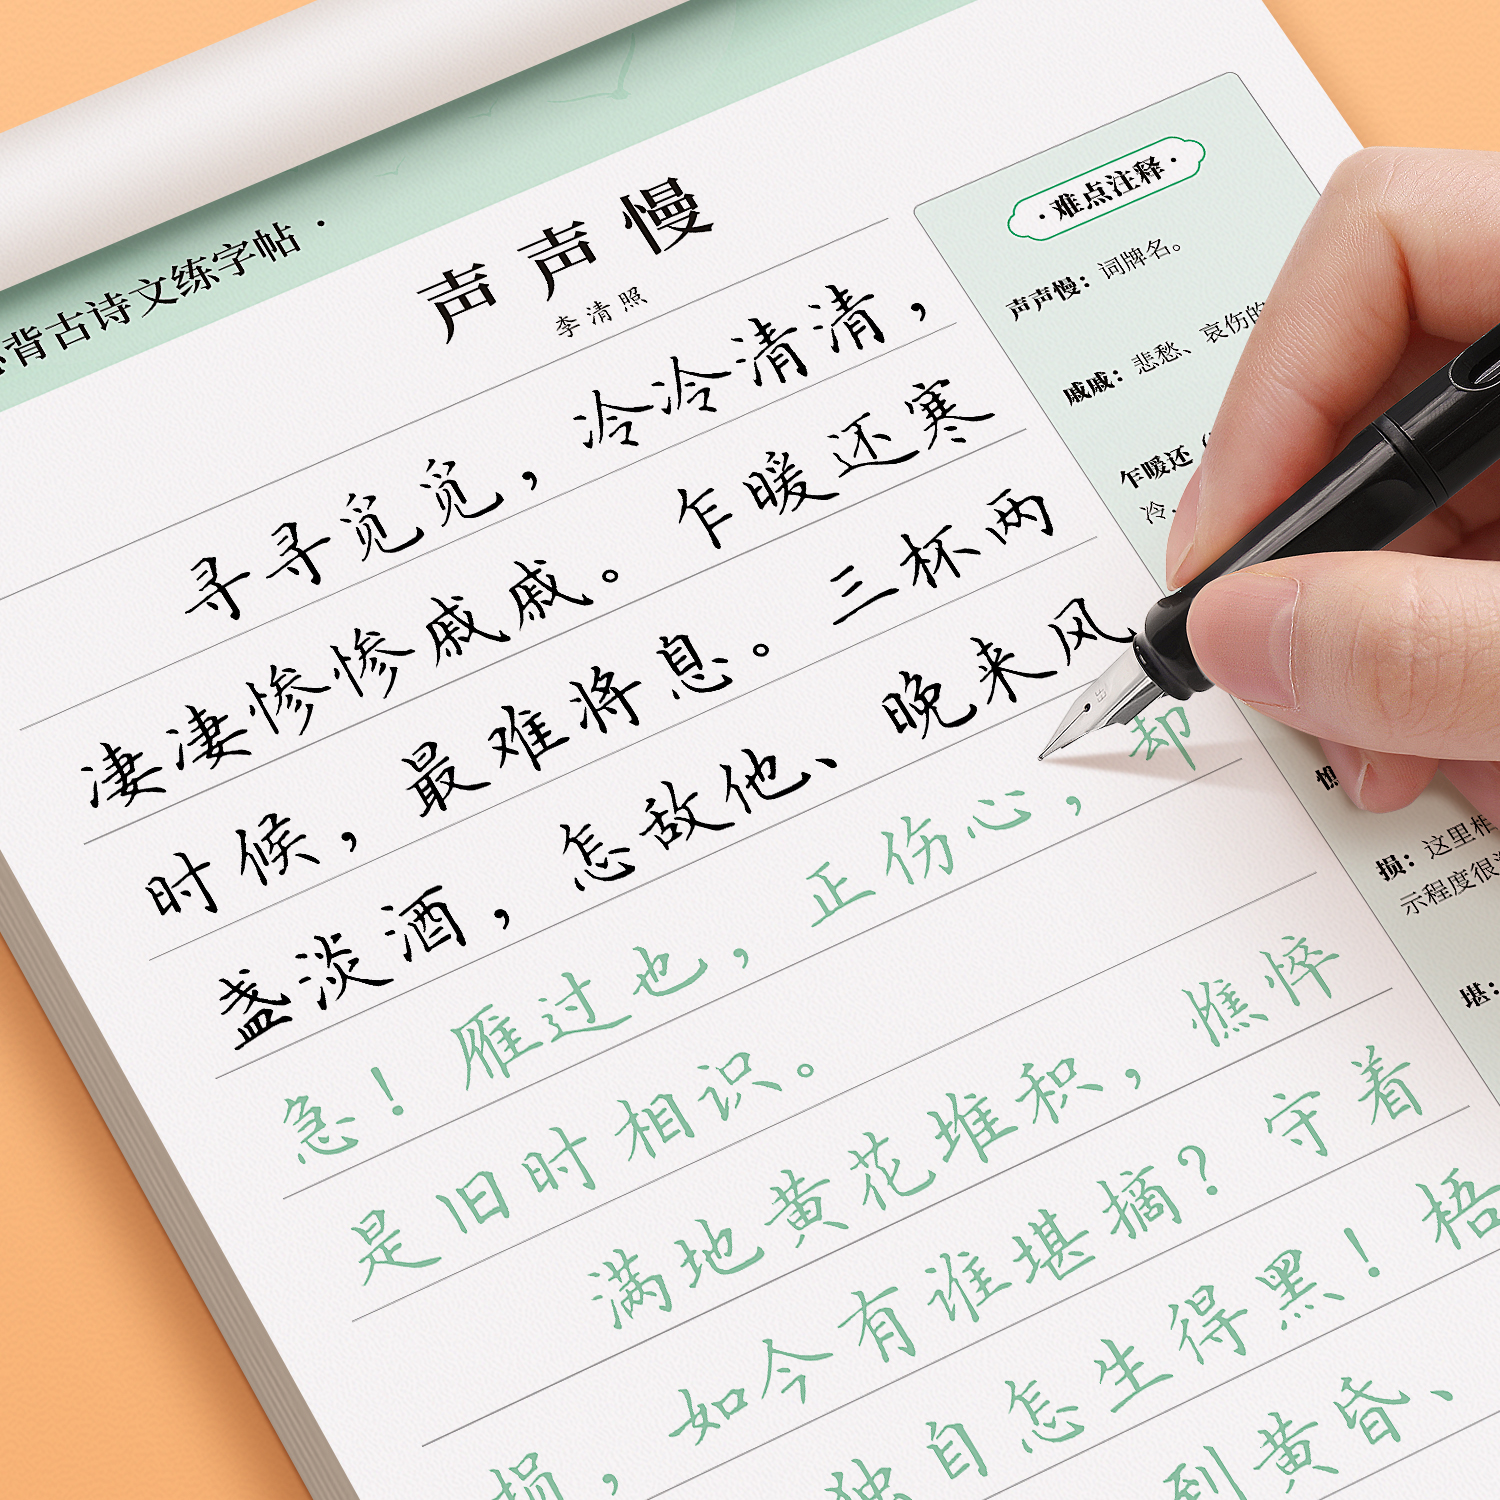 背古诗文练字帖·
声声慢
李清照
寻寻觅觅，冷冷清清，
凄凄惨惨戚戚。乍暖还寒
时候，最难将息。三杯两
盏淡酒，怎敌他、晚来风
急！雁过也，正伤心，却
是旧时相识。
满地黄花堆积，憔悴
损，如今有谁堪摘？守着
独自怎生得黑！梧
到黄昏、
·难点注释·
声声慢：词牌名。
戚戚：悲愁、哀伤的
乍暖还
冷，
憔
损：这里相
示程度很
堪：